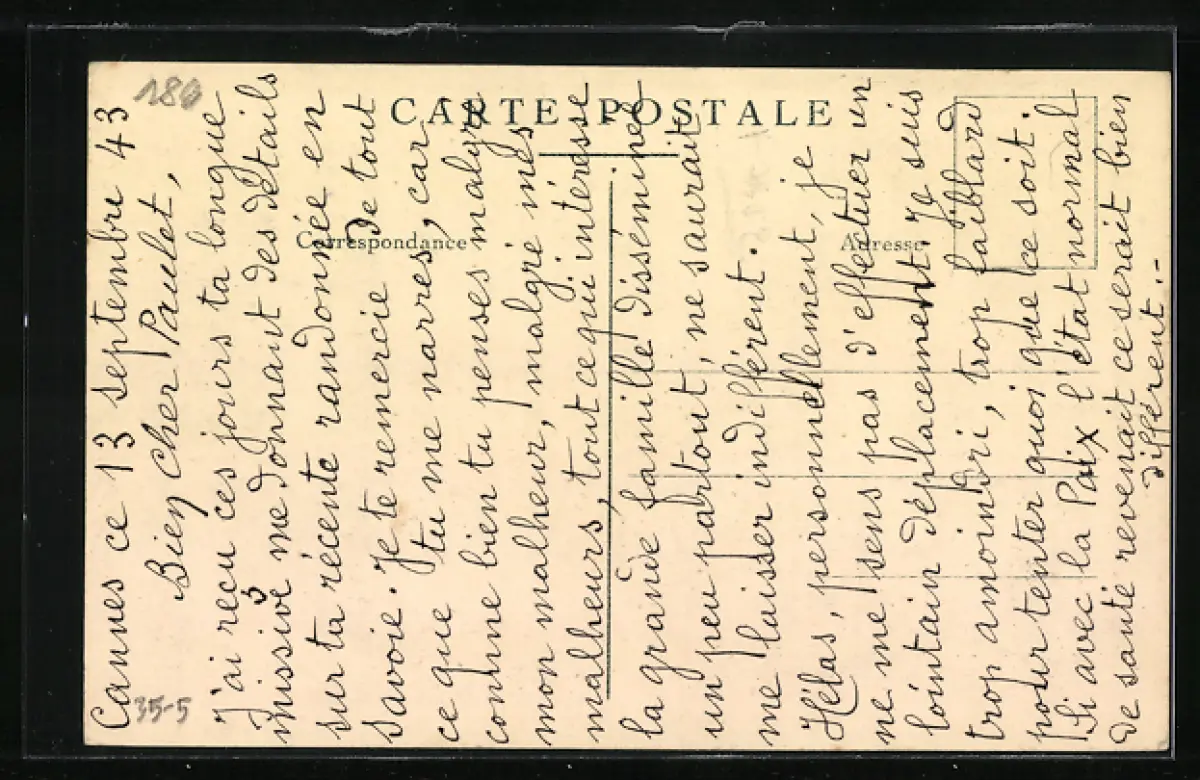 CARTE POSTALE
Correspondance
Adresse
180
35-5
Cannes ce 13 septembre 43
Bien Cher Paulet,
J'ai reçu ces jours ta longue
missive me donnant des détails
sur ta récente randonnée en
Savoie. Je te remercie de tout
ce que tu me narres, car
comme bien tu penses malgré
mon malheur, malgré mes
malheurs, tout ce qui intéresse
la grande famille disséminée
un peu partout, ne saurait
me laisser indifférent.
Hélas, personnellement, je
ne me sens pas d'effectuer un
lointain déplacement. Je suis
trop amoindri, trop faiblard
pour tenter quoi que ce soit.
Si avec la Paix l'état normal
de santé revenait ce serait bien
différent.-